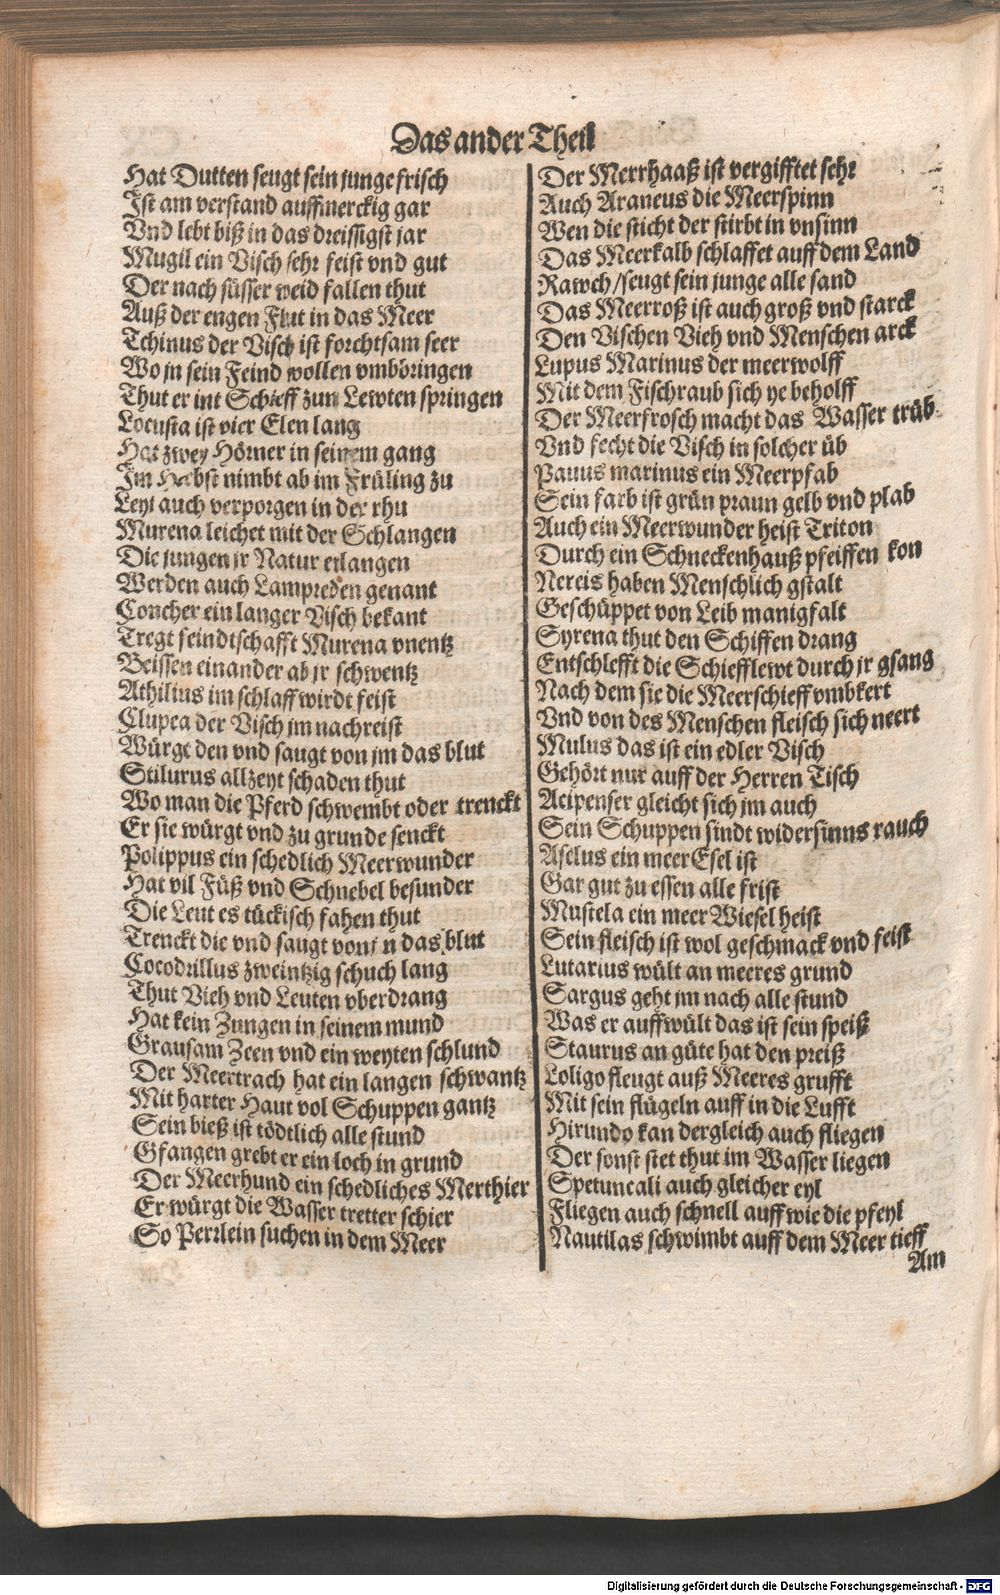 Das ander Theil
Hat Dutten seugt sein junge frisch
Ist am verstand auffmerckig gar
Vnd lebt biß in das dreissigst jar
Mugil ein Visch sehr feist vnd gut
Der nach süsser weid fallen thut
Auß der engen Flut in das Meer
Tchinus der Visch ist forchtsam seer
Wo jn sein Feind wollen vmbbringen
Thut er int Schieff zun Lewten springen
Locusta ist vier Elen lang
Hat zwey Hörner in seinem gang
Im Herbst nimbt ab im Früling zu
Leyt auch verporgen in der rhu
Murena leichet mit der Schlangen
Die jungen jr Natur erlangen
Werden auch Lampreden genant
Concher ein langer Visch bekant
Tregt feindtschafft Murena vnentz
Beissen einander ab jr schwentz
Athilius im schlaff wirdt feist
Clupea der Visch jm nachreist
Würgt den vnd saugt von jm das blut
Stilurus allzeyt schaden thut
Wo man die Pferd schwembt oder trenckt
Er sie würgt vnd zu grunde senckt
Polippus ein schedlich Meerwunder
Hat vil Füß vnd Schnebel besunder
Die Leut es tückisch fahen thut
Trenckt die vnd saugt von jn das blut
Cocodrillus zweintzig schuch lang
Thut Vieh vnd Leuten vberdrang
Hat kein Zungen in seinem mund
Grausam Zeen vnd ein weyten schlund
Der Meertrach hat ein langen schwantz
Mit harter Haut vol Schuppen gantz
Sein bieß ist tödtlich alle stund
Gfangen grebt er ein loch in grund
Der Meerhund ein schedliches Merthier
Er würgt die Wasser tretter schier
So Perrlein suchen in dem Meer
Der Merrhaaß ist vergifftet sehr
Auch Araneus die Meerspinn
Wen die sticht der stirbt in vnsinn
Das Meerkalb schlaffet auff dem Land
Rawch/seugt sein junge alle sand
Das Meerroß ist auch groß vnd starck
Den Vischen Vieh vnd Menschen arck
Lupus Marinus der meerwolff
Mit dem Fischraub sich ye beholff
Der Meerfrosch macht das Wasser trüb
Vnd fecht die Visch in solcher üb
Pauus marinus ein Meerpfab
Sein farb ist grün praun gelb vnd plab
Auch ein Meerwunder heist Triton
Durch ein Schneckenhauß pfeiffen kon
Nereis haben Menschlich gstalt
Geschüppet von Leib manigfalt
Syrena thut den Schiffen drang
Entschlefft die Schiefflewt durch jr gsang
Nach dem sie die Meerschieff vmbkert
Vnd von des Menschen fleisch sich neert
Mulus das ist ein edler Visch
Gehört nur auff der Herren Tisch
Acipenser gleicht sich jm auch
Sein Schuppen sindt widersinns rauch
Aselus ein meer Esel ist
Gar gut zu essen alle frist
Mustela ein meer Wiesel heist
Sein fleisch ist wol geschmack vnd feist
Lutarius wült an meeres grund
Sargus geht jm nach alle stund
Was er auffwült das ist sein speiß
Staurus an güte hat den preiß
Loligo fleugt auß Meeres grufft
Mit sein flügeln auff in die Lufft
Hirundo kan dergleich auch fliegen
Der sonst stet thut im Wasser liegen
Spetuncali auch gleicher eyl
Fliegen auch schnell auff wie die pfeyl
Nautilas schwimbt auff dem Meer tieff
Am
Digitalisierung gefördert durch die Deutsche Forschungsgemeinschaft - DFG